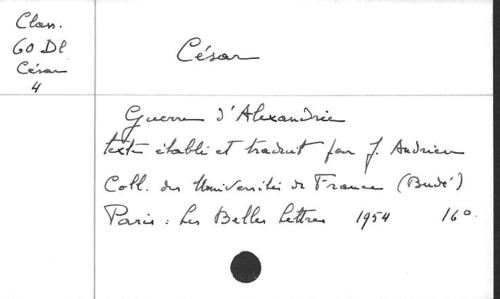 Class.
60 Dl
César
4
César
Guerre d'Alexandrie
texte établi et traduit par J. Andrieu
Coll. des Universités de France (Budé)
Paris : Les Belles Lettres 1954 16o.